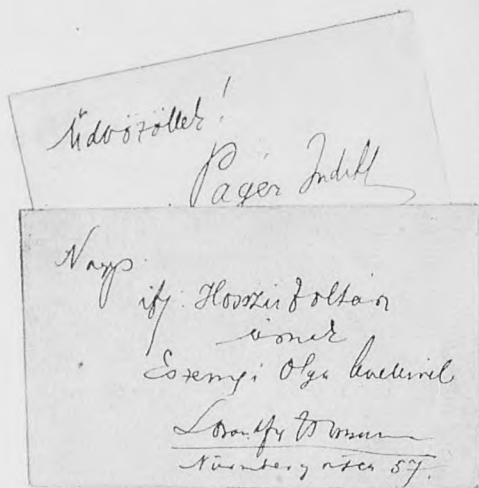 Üdvözöllek!
Pagér Judith
Nagys.
ifj. Hosszú Zoltán
úrnak
Eszenyi Olga
Nürnberg utca 57.